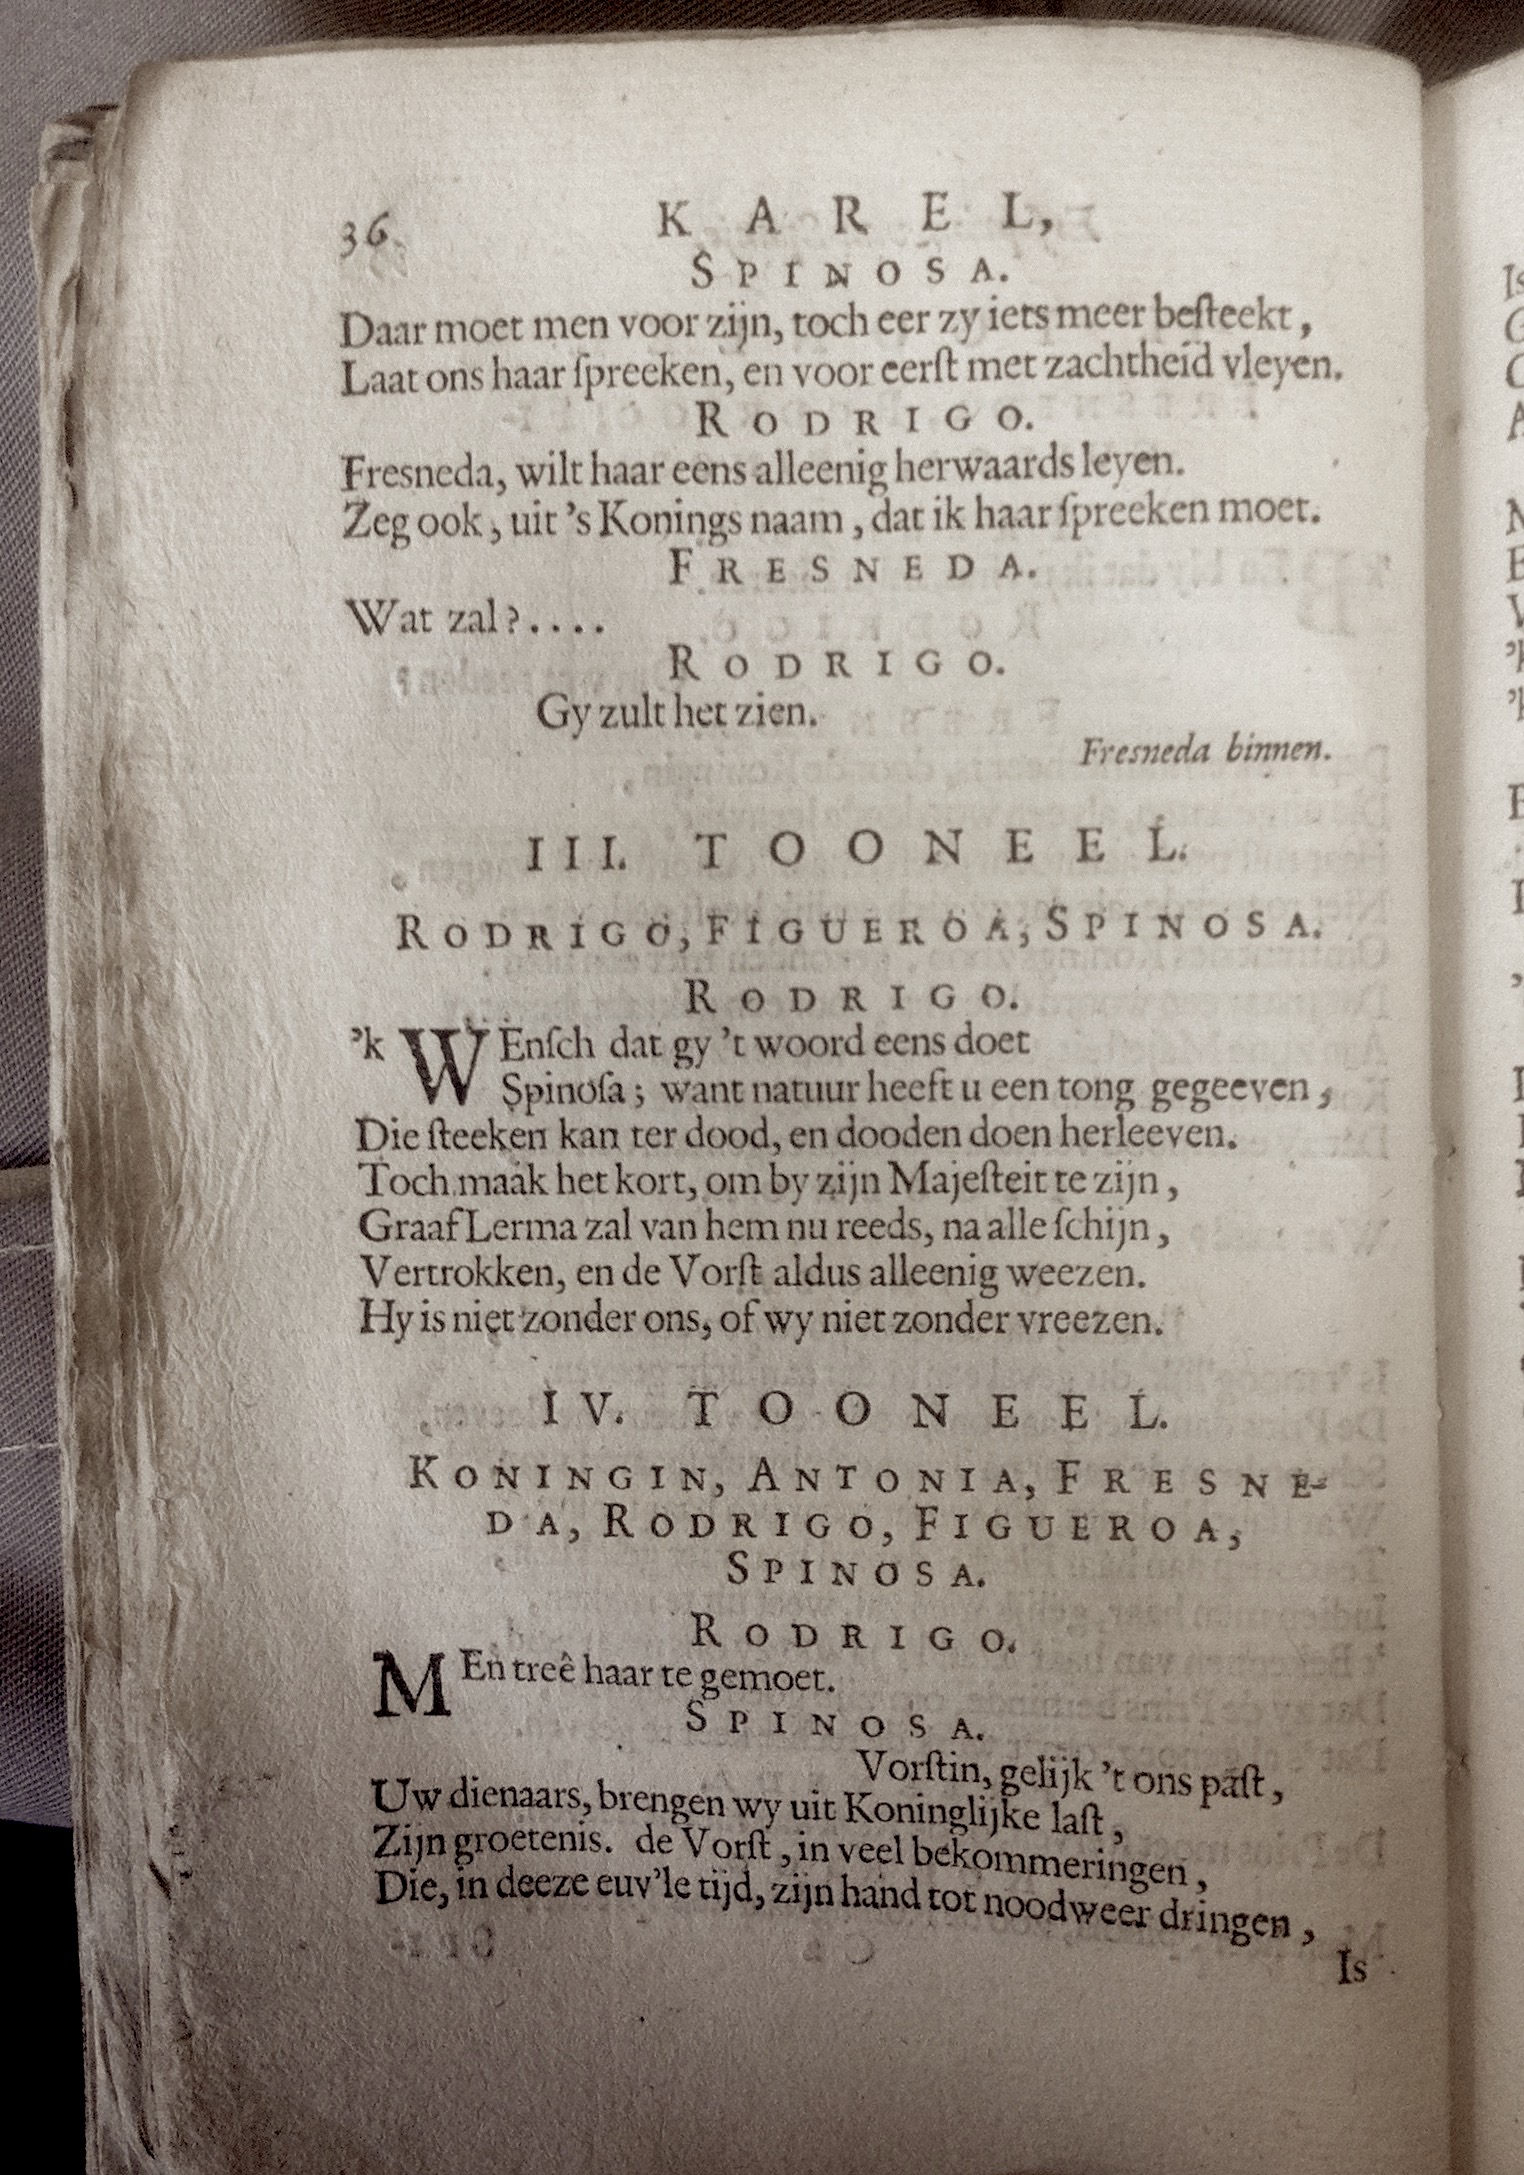 36 KAREL,
SPINOSA.
Daar moet men voor zijn, toch eer zy iets meer beſteekt,
Laat ons haar ſpreeken, en voor eerſt met zachtheid vleyen.
RODRIGO.
Fresneda, wilt haar eens alleenig herwaards leyen.
Zeg ook, uit 's Konings naam, dat ik haar ſpreeken moet.
FRESNEDA.
Wat zal?....
RODRIGO.
Gy zult het zien.
Fresneda binnen.
III. TOONEEL.
RODRIGO, FIGUEROA, SPINOSA.
RODRIGO.
'k WEnſch dat gy 't woord eens doet
Spinoſa; want natuur heeft u een tong gegeeven,
Die ſteeken kan ter dood, en dooden doen herleeven.
Toch maak het kort, om by zijn Majeſteit te zijn,
Graaf Lerma zal van hem nu reeds, na alle ſchijn,
Vertrokken, en de Vorſt aldus alleenig weezen.
Hy is niet zonder ons, of wy niet zonder vreezen.
IV. TOONEEL.
KONINGIN, ANTONIA, FRESNE-
DA, RODRIGO, FIGUEROA,
SPINOSA.
RODRIGO.
MEn treê haar te gemoet.
SPINOSA.
Vorſtin, gelijk 't ons paſt,
Uw dienaars, brengen wy uit Koninglijke laſt,
Zijn groetenis. de Vorſt, in veel bekommeringen,
Die, in deeze euv'le tijd, zijn hand tot noodweer dringen,
Is